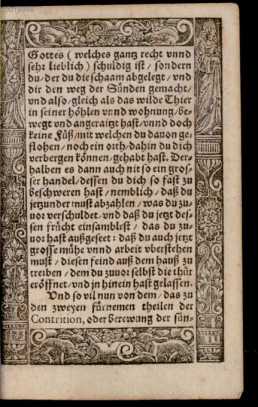 Gottes ( welches gantz recht vnnd
seht lieblich ) schuldig ist / sondern
du / der du die schaam abgelegt / vnd
dir den weg der Sünden gemacht /
vnd also / gleich als das wilde Thier
in seiner höhlen vnnd wohnung / be-
wegt vnd angeraitzt hast / vnnd doch
keine Füß / mit welchen du dauon ge-
flohen / noch ein orth / dahin du dich
verbergen können / gehabt hast. Der-
halben es dann auch nit so ein gros-
ser handel / dessen du dich so fast zu
beschweren hast / nemblich / daß du
jetzunder must abzahlen / was du zu-
uor verschuldet / vnd daß du jetzt des-
sen frücht einsamblest / das du zu-
uor hast außgeseet : daß du auch jetzt
grosse mühe vnnd arbeit vberstehen
must / diesen feind auß dem hauß zu
treiben / dem du zuuor selbst die thür
eröffnet / vnd jn hinein hast gelassen.
Vnd so vil nun von dem / das zu
den zweyen fürnemen theilen der
Contrition, oder berewang der sün-